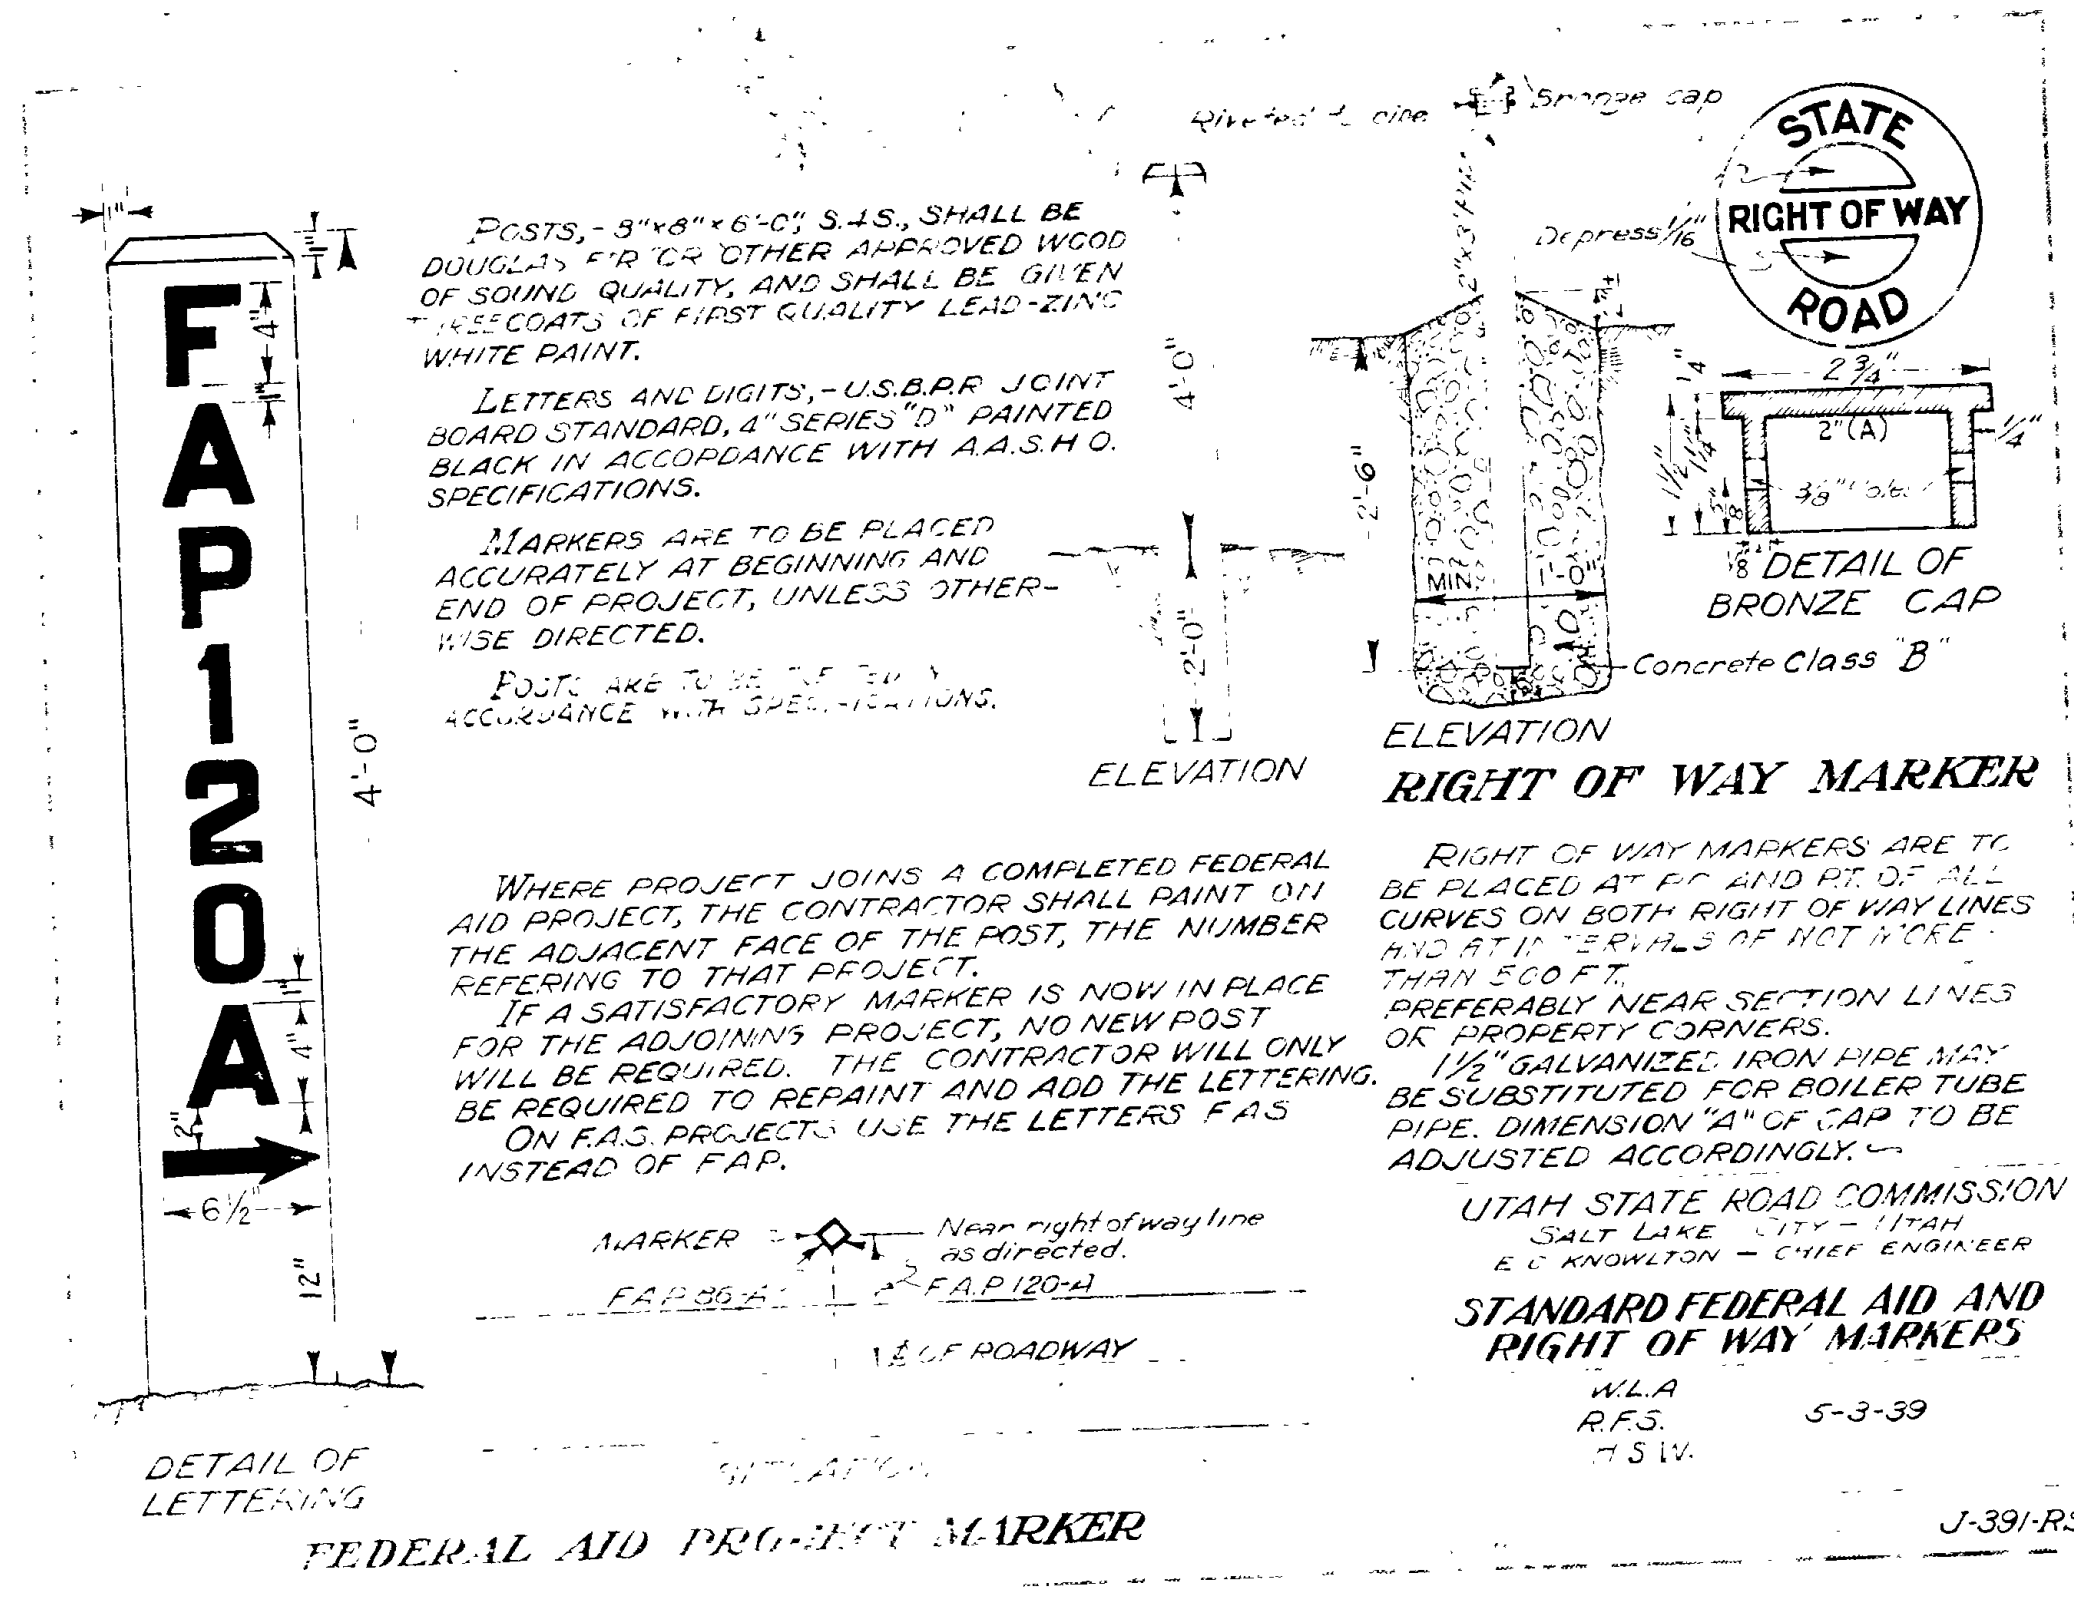 1"
1"
FAP120A
4"
1"
1"
4"
2"
6½"
12"
4'-0"
DETAIL OF
LETTERING
POSTS,- 8"x8"x6'-0", S.4S., SHALL BE
DOUGLAS FIR OR OTHER APPROVED WOOD
OF SOUND QUALITY, AND SHALL BE GIVEN
THREE COATS OF FIRST QUALITY LEAD-ZINC
WHITE PAINT.
LETTERS AND DIGITS,- U.S.B.P.R JOINT
BOARD STANDARD, 4" SERIES "D" PAINTED
BLACK IN ACCORDANCE WITH A.A.S.H O.
SPECIFICATIONS.
MARKERS ARE TO BE PLACED
ACCURATELY AT BEGINNING AND
END OF PROJECT, UNLESS OTHER-
WISE DIRECTED.
POSTS ARE TO BE
ACCORDANCE WITH SPECIFICATIONS.
4'-0"
2'-0"
ELEVATION
WHERE PROJECT JOINS A COMPLETED FEDERAL
AID PROJECT, THE CONTRACTOR SHALL PAINT ON
THE ADJACENT FACE OF THE POST, THE NUMBER
REFERING TO THAT PROJECT.
IF A SATISFACTORY MARKER IS NOW IN PLACE
FOR THE ADJOINING PROJECT, NO NEW POST
WILL BE REQUIRED. THE CONTRACTOR WILL ONLY
BE REQUIRED TO REPAINT AND ADD THE LETTERING.
ON F.A.S. PROJECTS USE THE LETTERS FAS
INSTEAD OF FAP.
MARKER
Near right of way line
as directed.
F A P 86-A
F.A.P 120-A
℄ OF ROADWAY
SITUATION
FEDERAL AID PROJECT MARKER
Riveted to pipe
Bronze cap
2"x3' Pipe
2'-6"
MIN.
1'-0"
Concrete Class "B"
ELEVATION
RIGHT OF WAY MARKER
STATE
RIGHT OF WAY
ROAD
Depress 1/16"
2¾"
¼"
2"(A)
¼"
1½"
1¼"
5/8"
3/8" Holes
1/8"
DETAIL OF
BRONZE CAP
RIGHT OF WAY MARKERS ARE TO
BE PLACED AT P.C AND P.T. OF ALL
CURVES ON BOTH RIGHT OF WAY LINES
AND AT INTERVALS OF NOT MORE
THAN 500 FT.,
PREFERABLY NEAR SECTION LINES
OR PROPERTY CORNERS.
1½" GALVANIZED IRON PIPE MAY
BE SUBSTITUTED FOR BOILER TUBE
PIPE. DIMENSION "A" OF CAP TO BE
ADJUSTED ACCORDINGLY.
UTAH STATE ROAD COMMISSION
SALT LAKE CITY - UTAH
E C KNOWLTON - CHIEF ENGINEER
STANDARD FEDERAL AID AND
RIGHT OF WAY MARKERS
W.L.A
R.F.S.
H S W.
5-3-39
J-391-RS